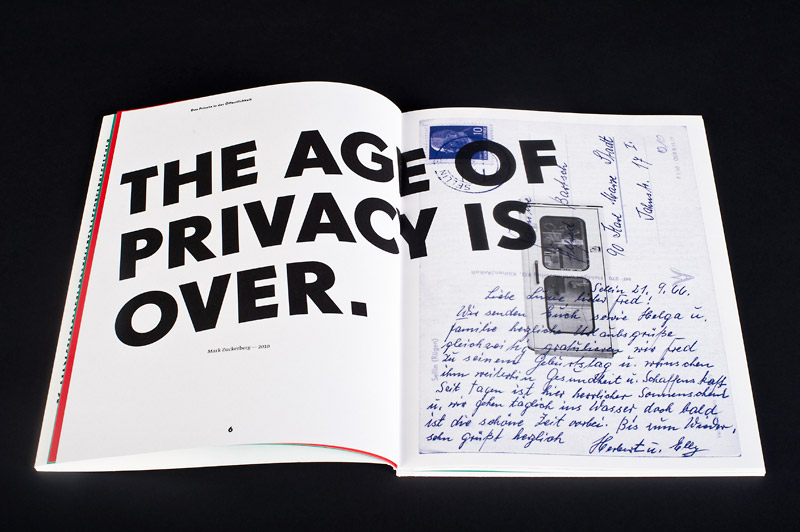 Das Private in der Öffentlichkeit
THE AGE OF
PRIVACY IS
OVER.
Mark Zuckerberg — 2010
6
10
SELLIN
Bartsch
90 Karl-Marx-Stadt
Jahnstr. 17
Sellin (Rügen)
Sellin 21. 9. 66.
Liebe Linde lieber Fred!
Wir senden Euch sowie Helga u.
Familie herzliche Urlaubsgrüße
gleichzeitig gratulieren wir Fred
zu seinem Geburtstag u. wünschen
ihm weiterhin Gesundheit u. Schaffenskraft
Seit Tagen ist hier herrlicher Sonnenschein
u. wir gehen täglich ins Wasser doch bald
ist die schöne Zeit vorbei. Bis zum Wieder,
sehn grüßt herzlich
Herbert u. Elly